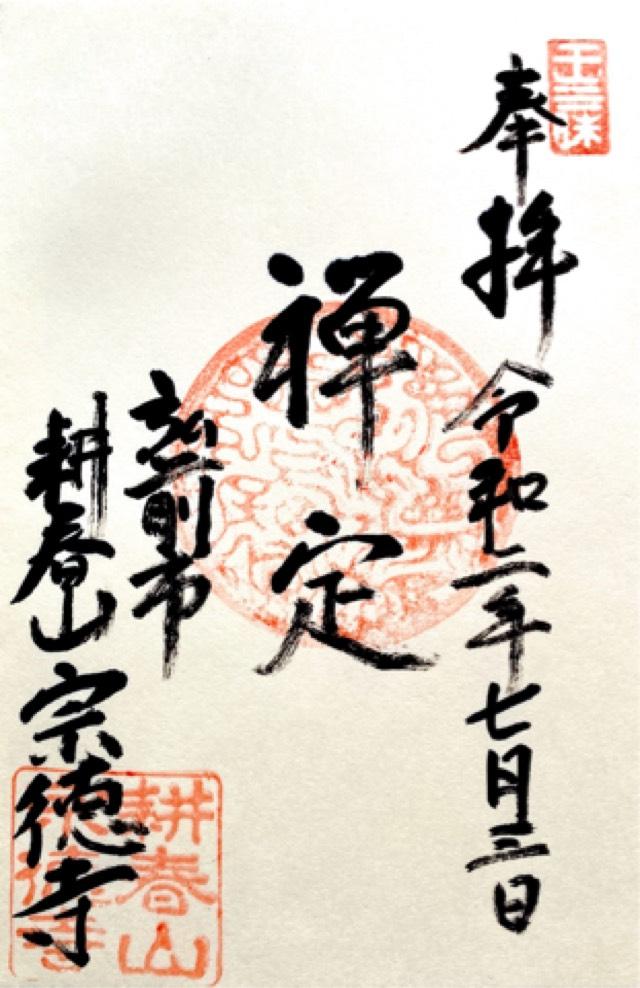 王三昧
奉拝 令和二年七月三日
禅定
弘前市
耕春山宗徳寺
耕春山
宗徳寺